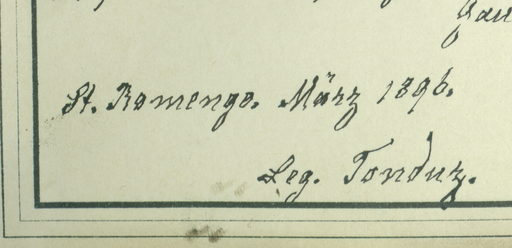 St. Romengo. März 1896.
Leg. Tonduz.